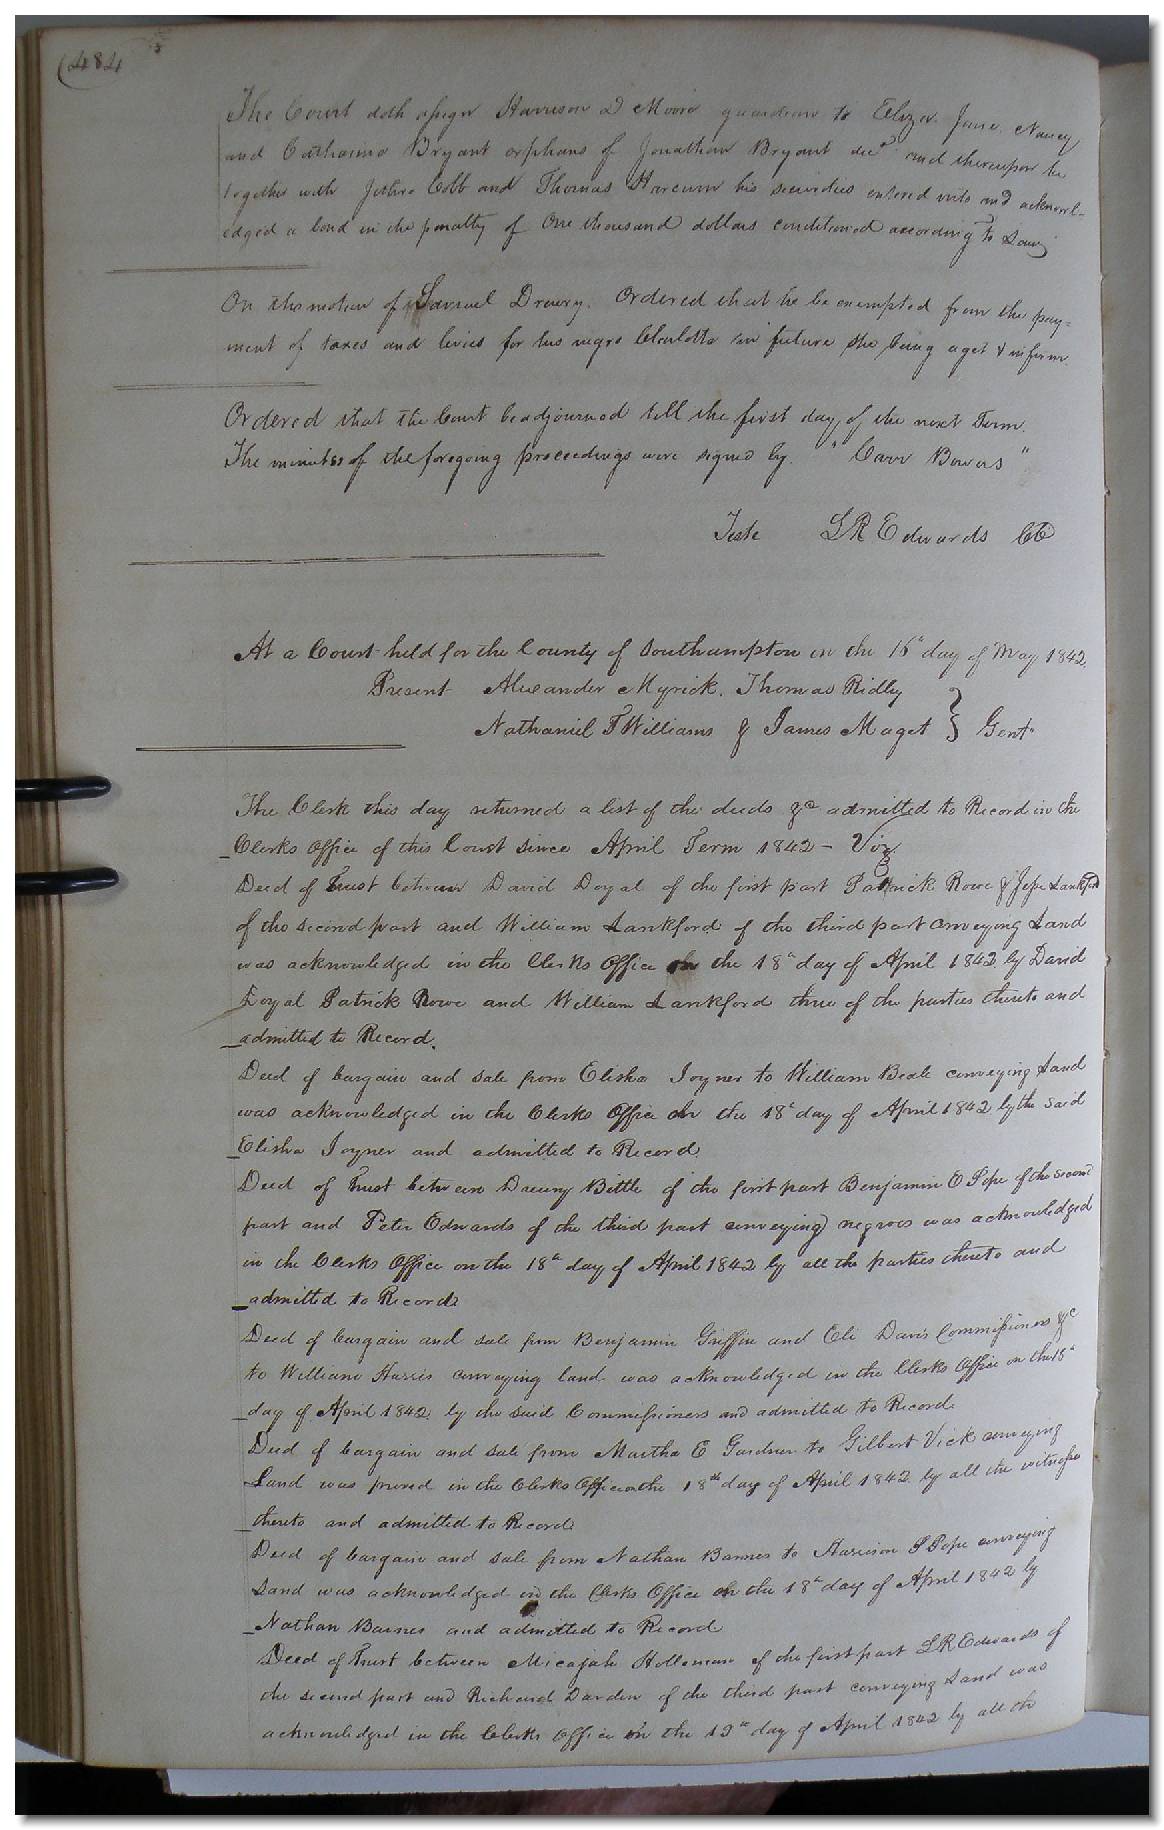 (484
The Court doth assign Harrison D Moore guardian to Eliza Jane, Nancy
and Catharine Bryant orphans of Jonathan Bryant decd and thereupon he
together with Cobb and Thomas Harcum his securities entered into and acknowl-
edged a bond in the penalty of One thousand dollars conditioned according to Law
On the motion of Samuel Drewry. Ordered that he be exempted from the pay=
ment of taxes and levies for his negro Charlotte in future she being aged & infirm.
Ordered that the Court be adjourned till the first day of the next Term.
The minutes of the foregoing proceedings were signed by. "Carr Bowers"
Teste LR Edwards CC
At a Court held for the County of Southampton on the 16th day of May 1842
Present Alexander Myrick, Thomas Ridley
Nathaniel T Williams & James Maget } Gent.
The Clerk this day returned a list of the deeds &c admitted to Record in the
Clerks Office of this Court since April Term 1842 - Viz
Deed of Trust between David Doyal of the first part Patrick Rowe & Jesse Lankford
of the second part and William Lankford of the third part conveying Land
was acknowledged in the Clerks Office on the 18th day of April 1842 by David
Doyal Patrick Rowe and William Lankford three of the parties thereto and
admitted to Record.
Deed of bargain and sale from Elisha Joyner to William Beale conveying Land
was acknowledged in the Clerks Office on the 18th day of April 1842 by the said
Elisha Joyner and admitted to Record
Deed of Trust between Drewry Bittle of the first part Benjamin E Pope of the second
part and Peter Edwards of the third part conveying negroes was acknowledged
in the Clerks Office on the 18th day of April 1842 by all the parties thereto and
admitted to Record
Deed of bargain and sale from Benjamin Griffin and Eli Davis Commissioners &c
to William Harris conveying land was acknowledged in the Clerks Office on the 18th
day of April 1842 by the said Commissioners and admitted to Record
Deed of bargain and sale from Martha E Gardner to Gilbert Vick conveying
Land was proved in the Clerks Office on the 18th day of April 1842 by all the witnesses
thereto and admitted to Record
Deed of bargain and sale from Nathan Barnes to Harrison P Pope conveying
Land was acknowledged in the Clerks Office on the 18th day of April 1842 by
Nathan Barnes and admitted to Record
Deed of Trust between Micajah Holleman of the first part LR Edwards of
the second part and Richard Darden of the third part conveying Land was
acknowledged in the Clerks Office on the 19th day of April 1842 by all the